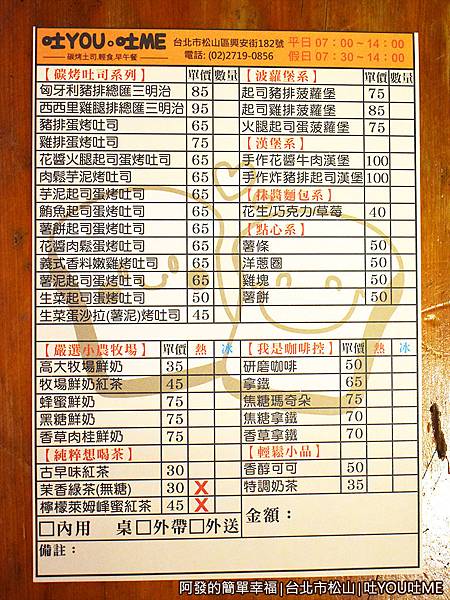 吐YOU·吐ME
碳烤吐司.輕食.早午餐
台北市松山區興安街182號
電話: (02)2719-0856
平日 07:00~14:00
假日 07:30~14:00
【碳烤吐司系列】 單價 數量
匈牙利豬排總匯三明治 85
西西里雞腿排總匯三明治 95
豬排蛋烤吐司 65
雞排蛋烤吐司 75
花醬火腿起司蛋烤吐司 65
肉鬆芋泥烤吐司 65
芋泥起司蛋烤吐司 65
鮪魚起司蛋烤吐司 65
薯餅起司蛋烤吐司 65
花醬肉鬆蛋烤吐司 65
義式香料嫩雞烤吐司 65
薯泥起司蛋烤吐司 65
生菜起司蛋烤吐司 50
生菜蛋沙拉(薯泥)烤吐司 45
【菠蘿堡系】 單價 數量
起司豬排菠蘿堡 75
起司雞排菠蘿堡 85
火腿起司蛋菠蘿堡 75
【漢堡系】
手作花醬牛肉漢堡 100
手作炸豬排起司漢堡 100
【抹醬麵包系】
花生/巧克力/草莓 40
【點心系】
薯條 50
洋蔥圈 50
雞塊 50
薯餅 50
【嚴選小農牧場】 單價 熱 冰
高大牧場鮮奶 35
牧場鮮奶紅茶 45
蜂蜜鮮奶 75
黑糖鮮奶 75
香草肉桂鮮奶 75
【純粹想喝茶】
古早味紅茶 30
茉香綠茶(無糖) 30 X
檸檬萊姆蜂蜜紅茶 45 X
【我是咖啡控】 單價 熱 冰
研磨咖啡 50
拿鐵 65
焦糖瑪奇朵 75
焦糖拿鐵 70
香草拿鐵 70
【輕鬆小品】
香醇可可 50
特調奶茶 35
□內用 桌□外帶□外送
金額:
備註:
阿發的簡單幸福|台北市松山|吐YOU吐ME